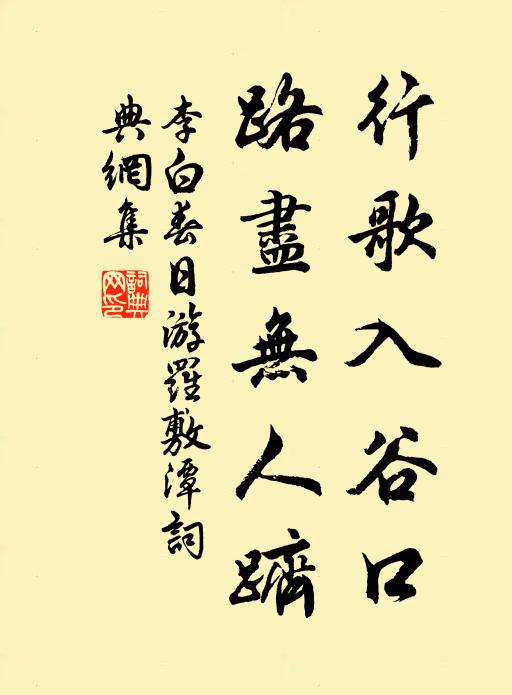 行歌入谷口
路盡無人躋
李白春日游羅敷潭詞
典網集
詞典
网印